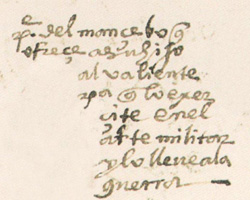 pe. del mancebo q
ofreçe a su hijo
al valiente
pa q lo exer
cite en el
arte militar
y lo lleve a la
guerra